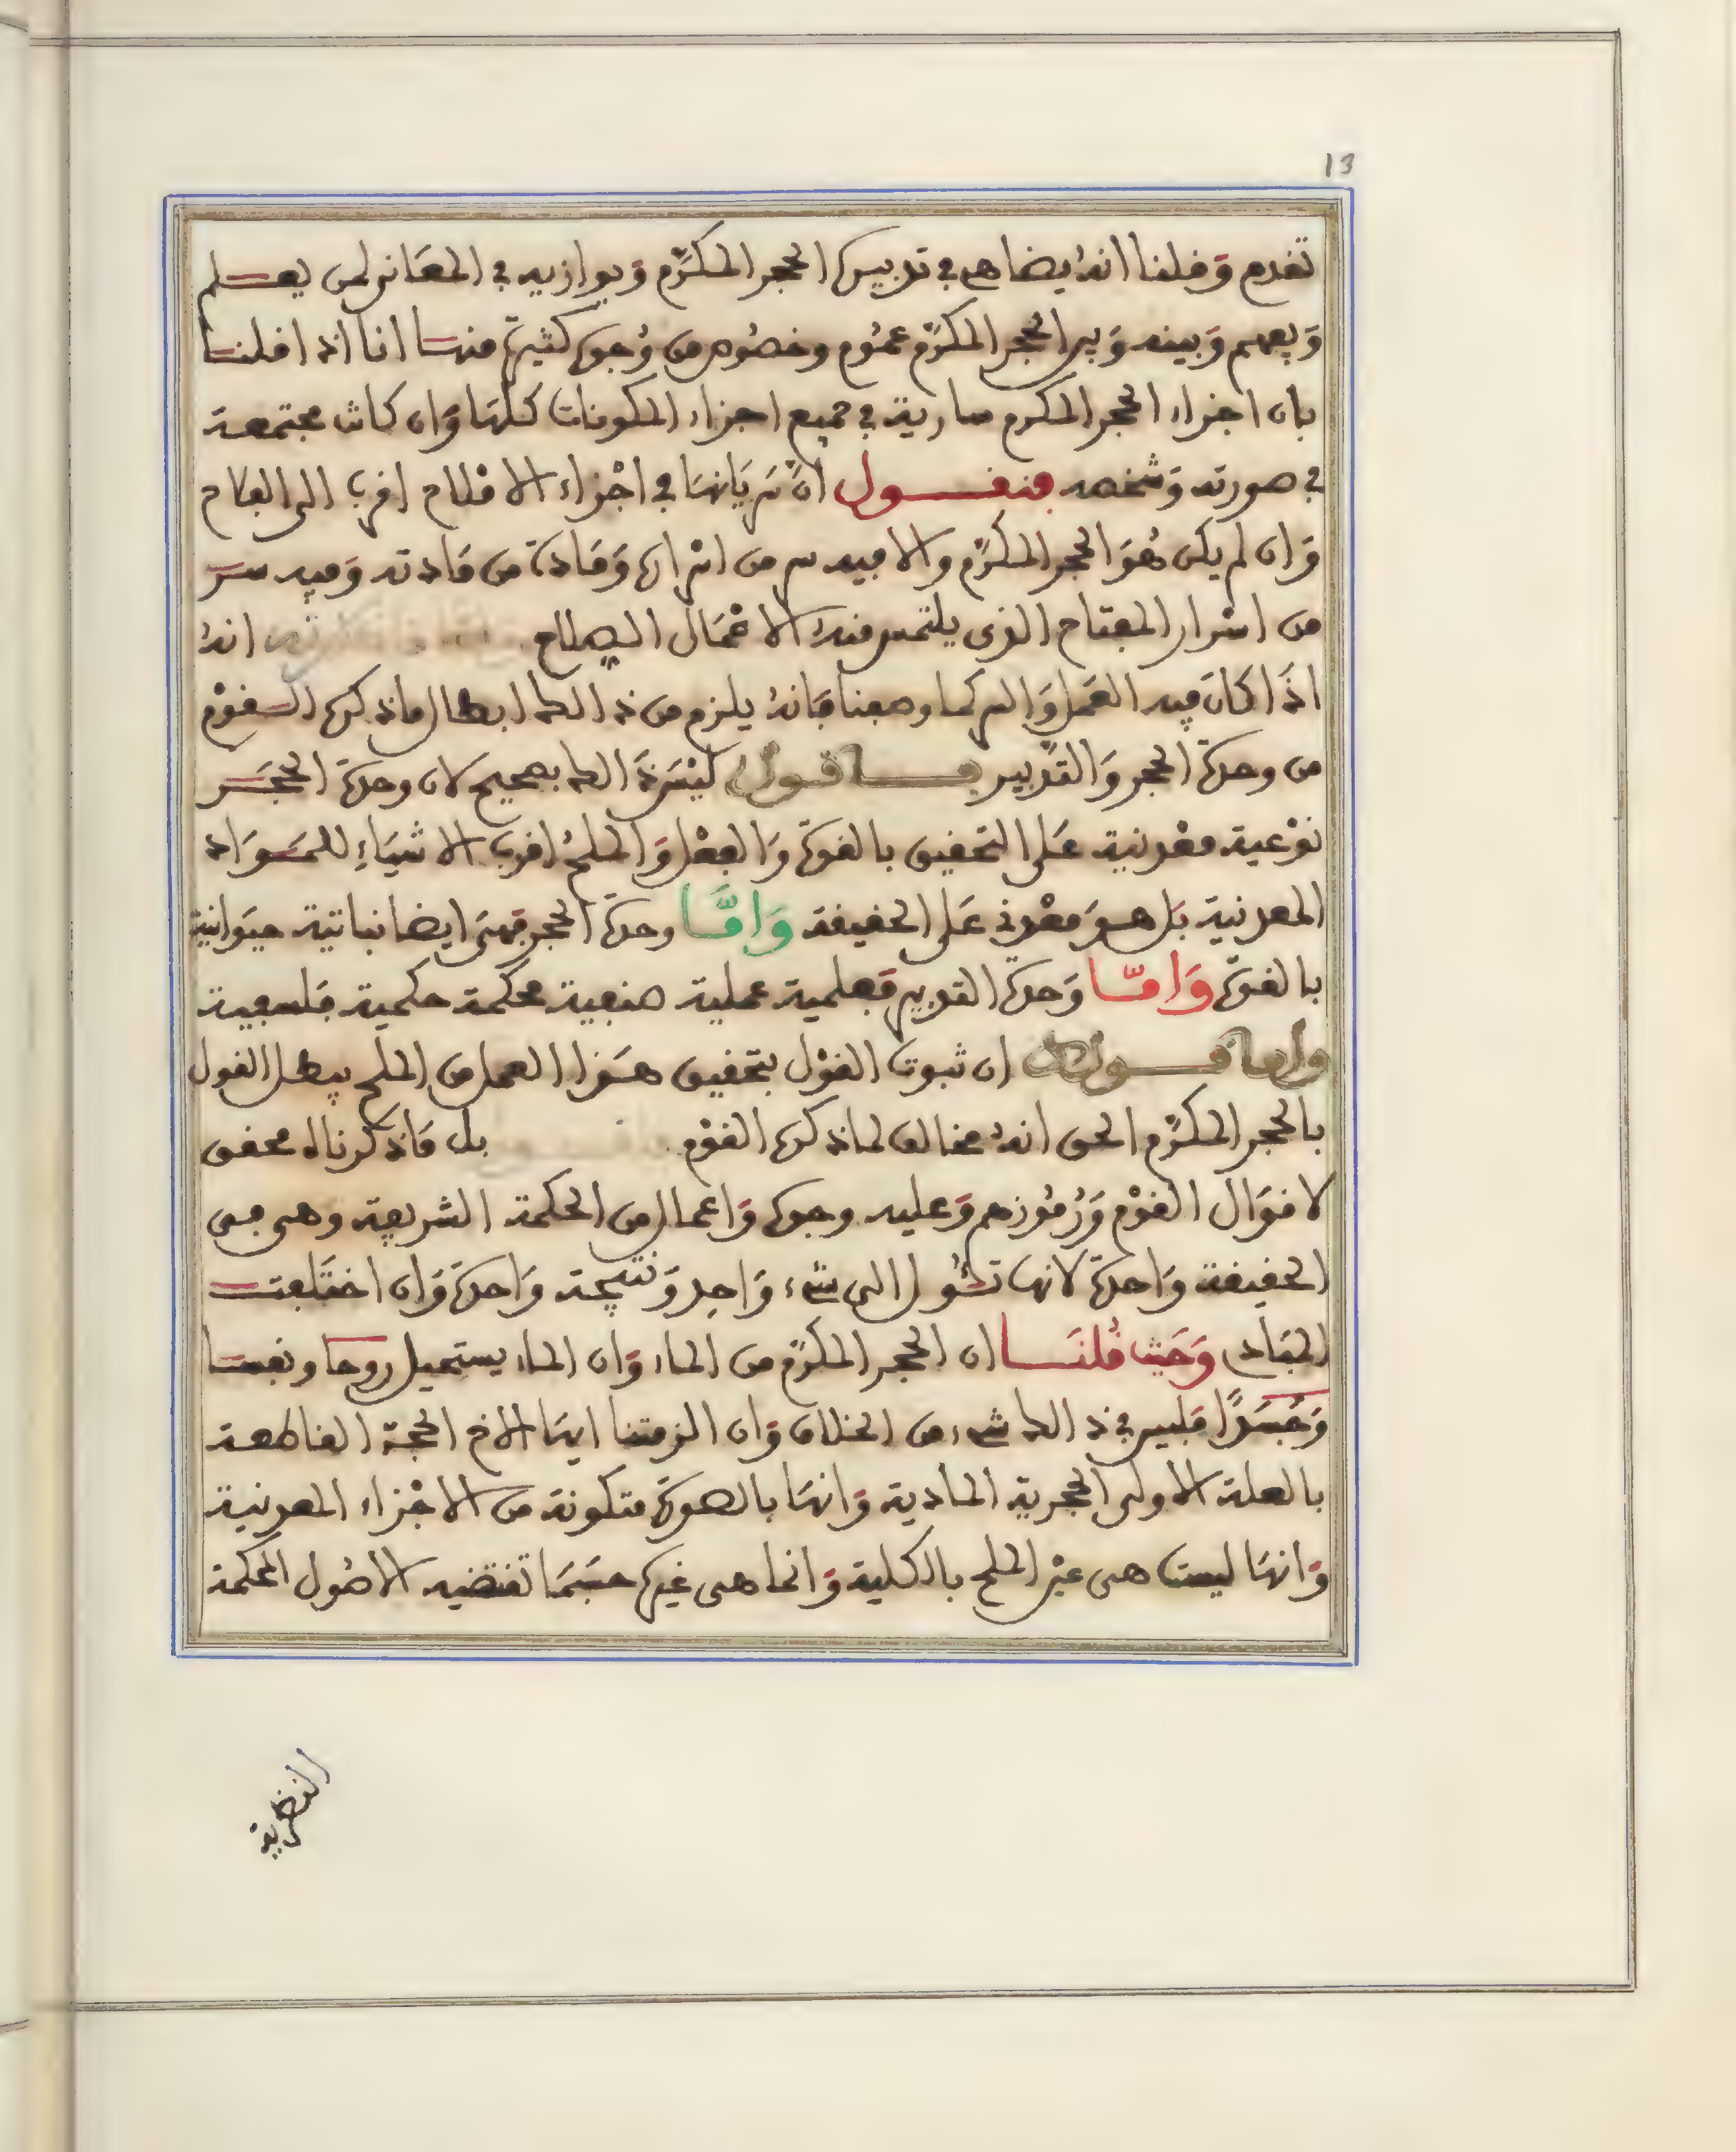 13
تقدم وقلنا انه يضاهى في تدبيره الحجر المكرّم ويوازيه في المعانى لمن يعلم
ويفهم وبينه وبين الحجر المكرّم عموم وخصوص من وجوه كثيرة منها انا اذا قلنا
بان اجزاء الحجر المكرم سارية في جميع اجزاء المكونات كلها وان كانت مجتمعة
في صورته وشخصه فنقول ان سريانها في اجزاء الاملاح اقرب الى الفلاح
وان لم يكن هو الحجر المكرّم والا فيه سر من اسراره ومادة من مادته وفيه سر
من اسرار المفتاح الذى يلتمس منه الاعمال الصلاح انه
اذا كان فيه العمل والسر كما وصفنا فانه يلزم من ذالك ابطال ماذكره القوم
من وحدة الحجر والتدبير فاقول ليس ذالك بصحيح لان وحدة الحجر
نوعية معدنية على التحقيق بالقوة والفعل والملح اقرب الاشياء للمواد
المعدنية بل هو معدنى على الحقيقة وامّا وحدة الحجر فهى ايضا نباتية حيوانية
بالقوة وامّا وحدة التدبير فعلمية عملية صنعية محكمة حكمية فلسفية
ان ثبوت القول بتحقيق هذا العمل من الملح يبطل القول
بالحجر المكرّم الحق انه مخالف لماذكره القوم بل ماذكرناه محقق
لاقوال القوم ورموزهم وعليه وجوه واعمال من الحكمة الشريفة وهى فى
الحقيقة واحدة لانها تئول الى شىء واحد ونتيجة واحدة وان اختلفت
المبادى وحيث قلنا ان الحجر المكرّم من الماء وان الماء يستحيل روحا ونفسا
وجسدًا فليس في ذالك شىء من الخلاف وان الزمتنا ايها الاخ الحجة القاطعة
بالعلة الاولى الحجرية المادية وانها بالصورة متكونة من الاجزاء المعدنية
وانها ليست هى عين الملح بالكلية وانما هى غيره حسبما تقتضيه الاصول المحكمة
النظرية